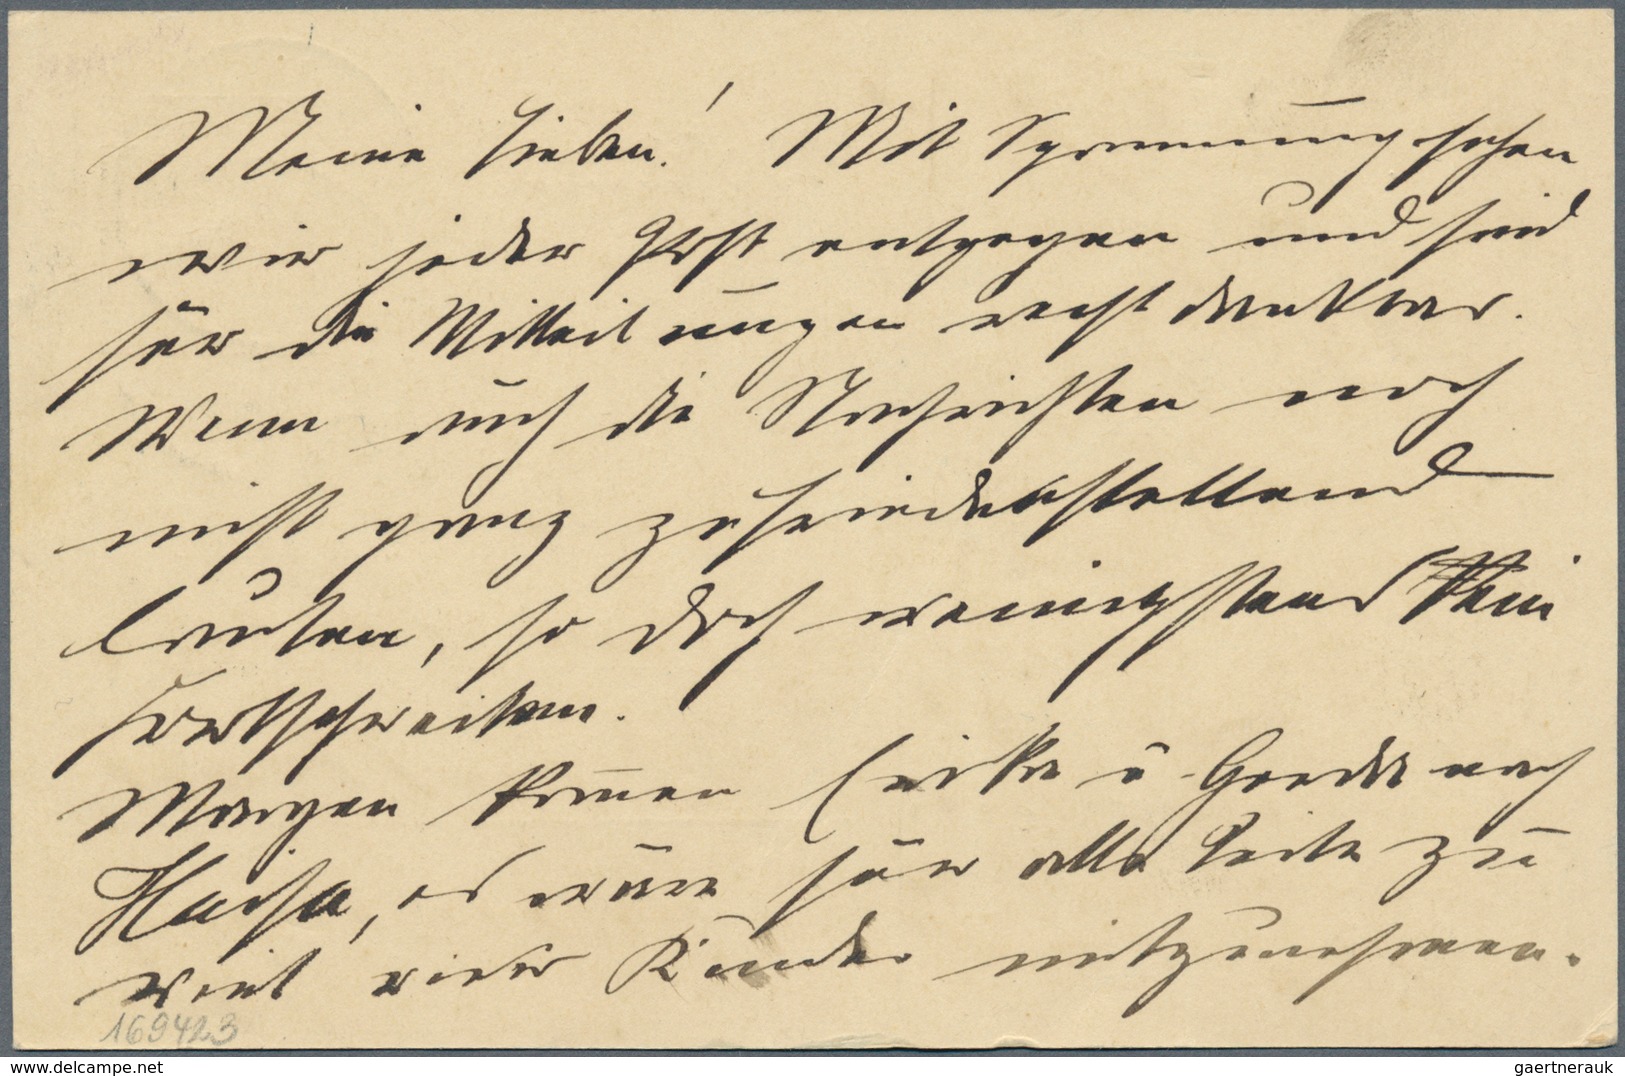 Meine Lieben! Mit Spannung sehen
wir jeder Post entgegen und sind
für die Mitteilungen recht dankbar.
Wenn auch die Nachrichten noch
nicht ganz zufriedenstellend
lauten, so doch wenigstens kein
Fortschreiten.
Morgen kommen u. Gerda nach
es wäre für alle Teile zu
viel vier Kinder mitzunehmen.
169423
www.delcampe.net
gaertnerauk